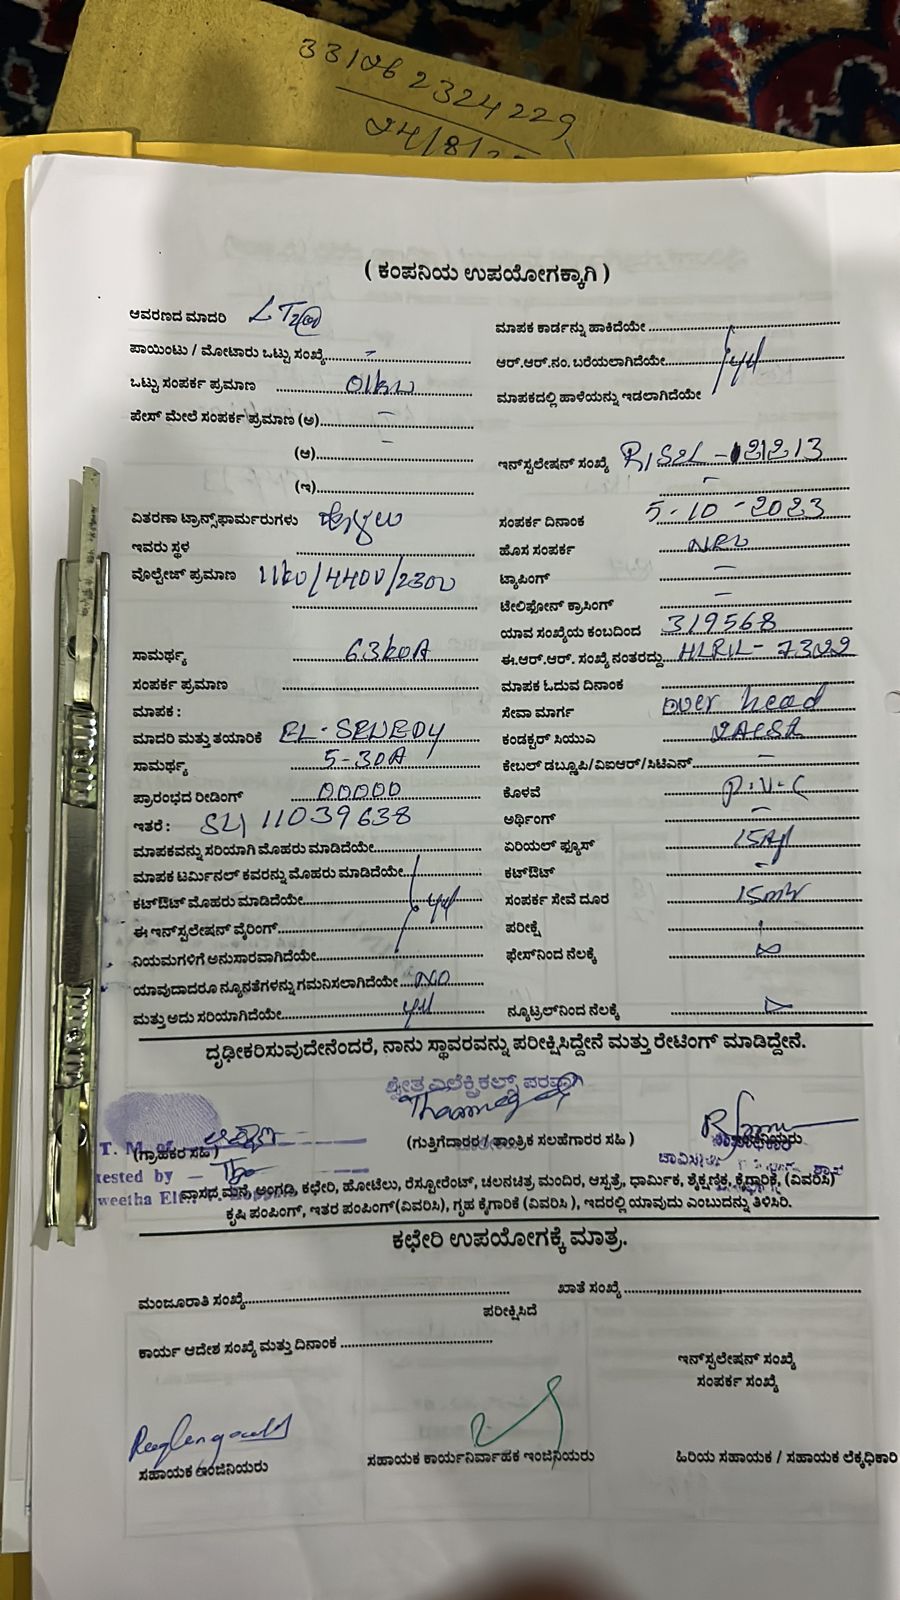 33126 2324229
24/8/2
( ಕಂಪನಿಯ ಉಪಯೋಗಕ್ಕಾಗಿ )
ಆವರಣದ ಮಾದರಿ LT2(a)
ಮಾಪಕ ಕಾರ್ಡನ್ನು ಹಾಕಿದೆಯೇ
ಪಾಯಿಂಟು / ಮೋಟಾರು ಒಟ್ಟು ಸಂಖ್ಯೆ -
ಆರ್.ಆರ್.ನಂ. ಬರೆಯಲಾಗಿದೆಯೇ
ಒಟ್ಟು ಸಂಪರ್ಕ ಪ್ರಮಾಣ 01kw
ಮಾಪಕದಲ್ಲಿ ಹಾಳೆಯನ್ನು ಇಡಲಾಗಿದೆಯೇ
ಪೇಸ್ ಮೇಲೆ ಸಂಪರ್ಕ ಪ್ರಮಾಣ (ಅ) -
(ಆ) -
ಇನ್‌ಸ್ಪಲೇಷನ್ ಸಂಖ್ಯೆ
(ಇ)
ವಿತರಣಾ ಟ್ರಾನ್ಸ್‌ಫಾರ್ಮರುಗಳು
ಸಂಪರ್ಕ ದಿನಾಂಕ 5-10-2023
ಇವರು ಸ್ಥಳ
ಹೊಸ ಸಂಪರ್ಕ
ವೊಲ್ಟೇಜ್ ಪ್ರಮಾಣ 11kv/440v/230v
ಟ್ಯಾಪಿಂಗ್ -
ಟೇಲಿಫೋನ್ ಕ್ರಾಸಿಂಗ್ -
ಯಾವ ಸಂಖ್ಯೆಯ ಕಂಬದಿಂದ 319568
ಸಾಮರ್ಥ್ಯ 63kvA
ಈ.ಆರ್.ಆರ್. ಸಂಖ್ಯೆ ನಂತರದ್ದು
ಸಂಪರ್ಕ ಪ್ರಮಾಣ
ಮಾಪಕ ಓದುವ ದಿನಾಂಕ
ಮಾಪಕ :
ಸೇವಾ ಮಾರ್ಗ over head
ಮಾದರಿ ಮತ್ತು ತಯಾರಿಕೆ
ಕಂಡಕ್ಟರ್ ಸಿಯುಎ
ಸಾಮರ್ಥ್ಯ 5-30A
ಕೇಬಲ್ ಡಬ್ಲೂಪಿ/ವಿಐಆರ್/ಸಿಟಿಎನ್ -
ಪ್ರಾರಂಭದ ರೀಡಿಂಗ್ 00000
ಕೊಳವೆ P.V.C
ಇತರೆ : SL/ 11039638
ಅರ್ಥಿಂಗ್ -
ಮಾಪಕವನ್ನು ಸರಿಯಾಗಿ ಮೊಹರು ಮಾಡಿದೆಯೇ
ಏರಿಯಲ್ ಫ್ಯೂಸ್
ಮಾಪಕ ಟರ್ಮಿನಲ್ ಕವರನ್ನು ಮೊಹರು ಮಾಡಿದೆಯೇ
ಕಟ್‌ಔಟ್ -
ಕಟ್‌ಔಟ್ ಮೊಹರು ಮಾಡಿದೆಯೇ
ಸಂಪರ್ಕ ಸೇವೆ ದೂರ
ಈ ಇನ್‌ಸ್ಪಲೇಷನ್ ವೈರಿಂಗ್
ಪರೀಕ್ಷೆ
ನಿಯಮಗಳಿಗೆ ಅನುಸಾರವಾಗಿದೆಯೇ
ಫೇಸ್‌ನಿಂದ ನೆಲಕ್ಕೆ
ಯಾವುದಾದರೂ ನ್ಯೂನತೆಗಳನ್ನು ಗಮನಿಸಲಾಗಿದೆಯೇ NO
ಮತ್ತು ಅದು ಸರಿಯಾಗಿದೆಯೇ
ನ್ಯೂಟ್ರಲ್‌ನಿಂದ ನೆಲಕ್ಕೆ
ದೃಢೀಕರಿಸುವುದೇನೆಂದರೆ, ನಾನು ಸ್ಥಾವರವನ್ನು ಪರೀಕ್ಷಿಸಿದ್ದೇನೆ ಮತ್ತು ರೇಟಿಂಗ್ ಮಾಡಿದ್ದೇನೆ.
ಶ್ವೇತ ಎಲೆಕ್ಟ್ರಿಕಲ್ಸ್ ಪರವಾಗಿ
T. M. of
(ಗ್ರಾಹಕರ ಸಹಿ )
(ಗುತ್ತಿಗೆದಾರರ / ತಾಂತ್ರಿಕ ಸಲಹೆಗಾರರ ಸಹಿ )
tested by
weetha Elt
ವಾಸದ ಮನೆ, ಅಂಗಡಿ, ಕಛೇರಿ, ಹೋಟೆಲು, ರೆಸ್ಟೋರೆಂಟ್, ಚಲನಚಿತ್ರ ಮಂದಿರ, ಆಸ್ಪತ್ರೆ, ಧಾರ್ಮಿಕ, ಶೈಕ್ಷಣಿಕ, ಕೈಗಾರಿಕೆ, (ವಿವರಿಸಿ)
ಕೃಷಿ ಪಂಪಿಂಗ್, ಇತರ ಪಂಪಿಂಗ್(ವಿವರಿಸಿ), ಗೃಹ ಕೈಗಾರಿಕೆ (ವಿವರಿಸಿ ), ಇದರಲ್ಲಿ ಯಾವುದು ಎಂಬುದನ್ನು ತಿಳಿಸಿರಿ.
ಕಛೇರಿ ಉಪಯೋಗಕ್ಕೆ ಮಾತ್ರ.
ಮಂಜೂರಾತಿ ಸಂಖ್ಯೆ
ಖಾತೆ ಸಂಖ್ಯೆ
ಪರೀಕ್ಷಿಸಿದೆ
ಕಾರ್ಯ ಆದೇಶ ಸಂಖ್ಯೆ ಮತ್ತು ದಿನಾಂಕ
ಇನ್‌ಸ್ಪಲೇಷನ್ ಸಂಖ್ಯೆ
ಸಂಪರ್ಕ ಸಂಖ್ಯೆ
ಸಹಾಯಕ ಇಂಜಿನಿಯರು
ಸಹಾಯಕ ಕಾರ್ಯನಿರ್ವಾಹಕ ಇಂಜಿನಿಯರು
ಹಿರಿಯ ಸಹಾಯಕ / ಸಹಾಯಕ ಲೆಕ್ಕಧಿಕಾರಿ